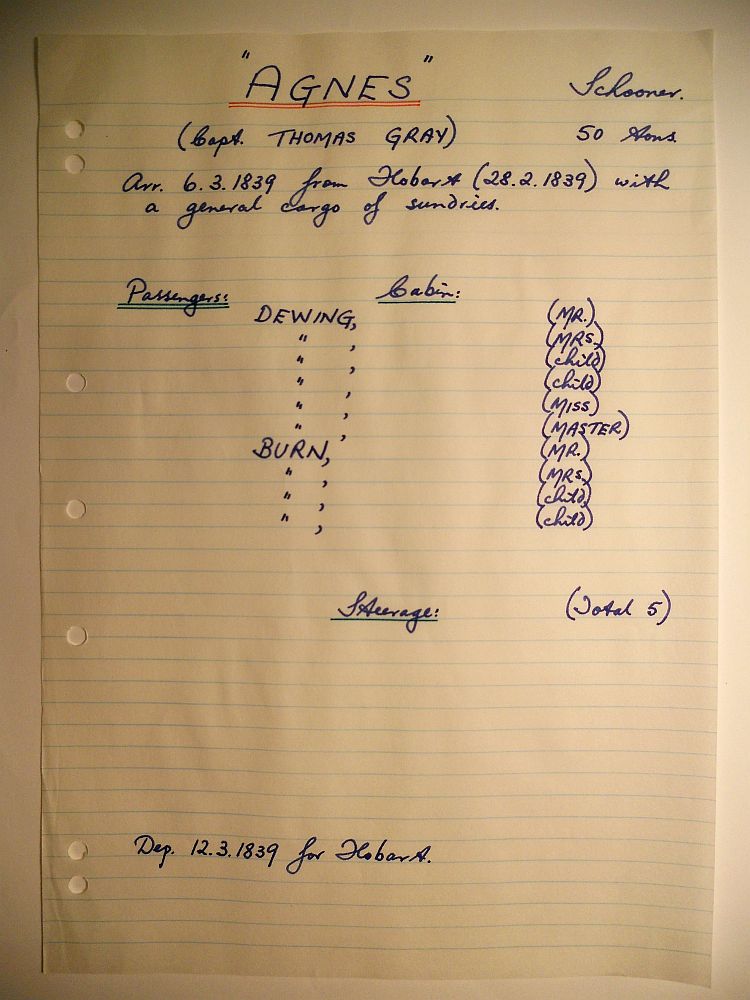 "AGNES" Schooner.
(Capt. THOMAS GRAY) 50 tons.
Arr. 6.3.1839 from Hobart (28.2.1839) with
a general cargo of sundries.
Passengers: Cabin:
DEWING, (MR.)
" , (MRS.)
" , (child)
" , (child)
" , (MISS)
" , (MASTER)
BURN, (MR.)
" , (MRS.)
" , (child)
" , (child)
Steerage: (Total 5)
Dep. 12.3.1839 for Hobart.